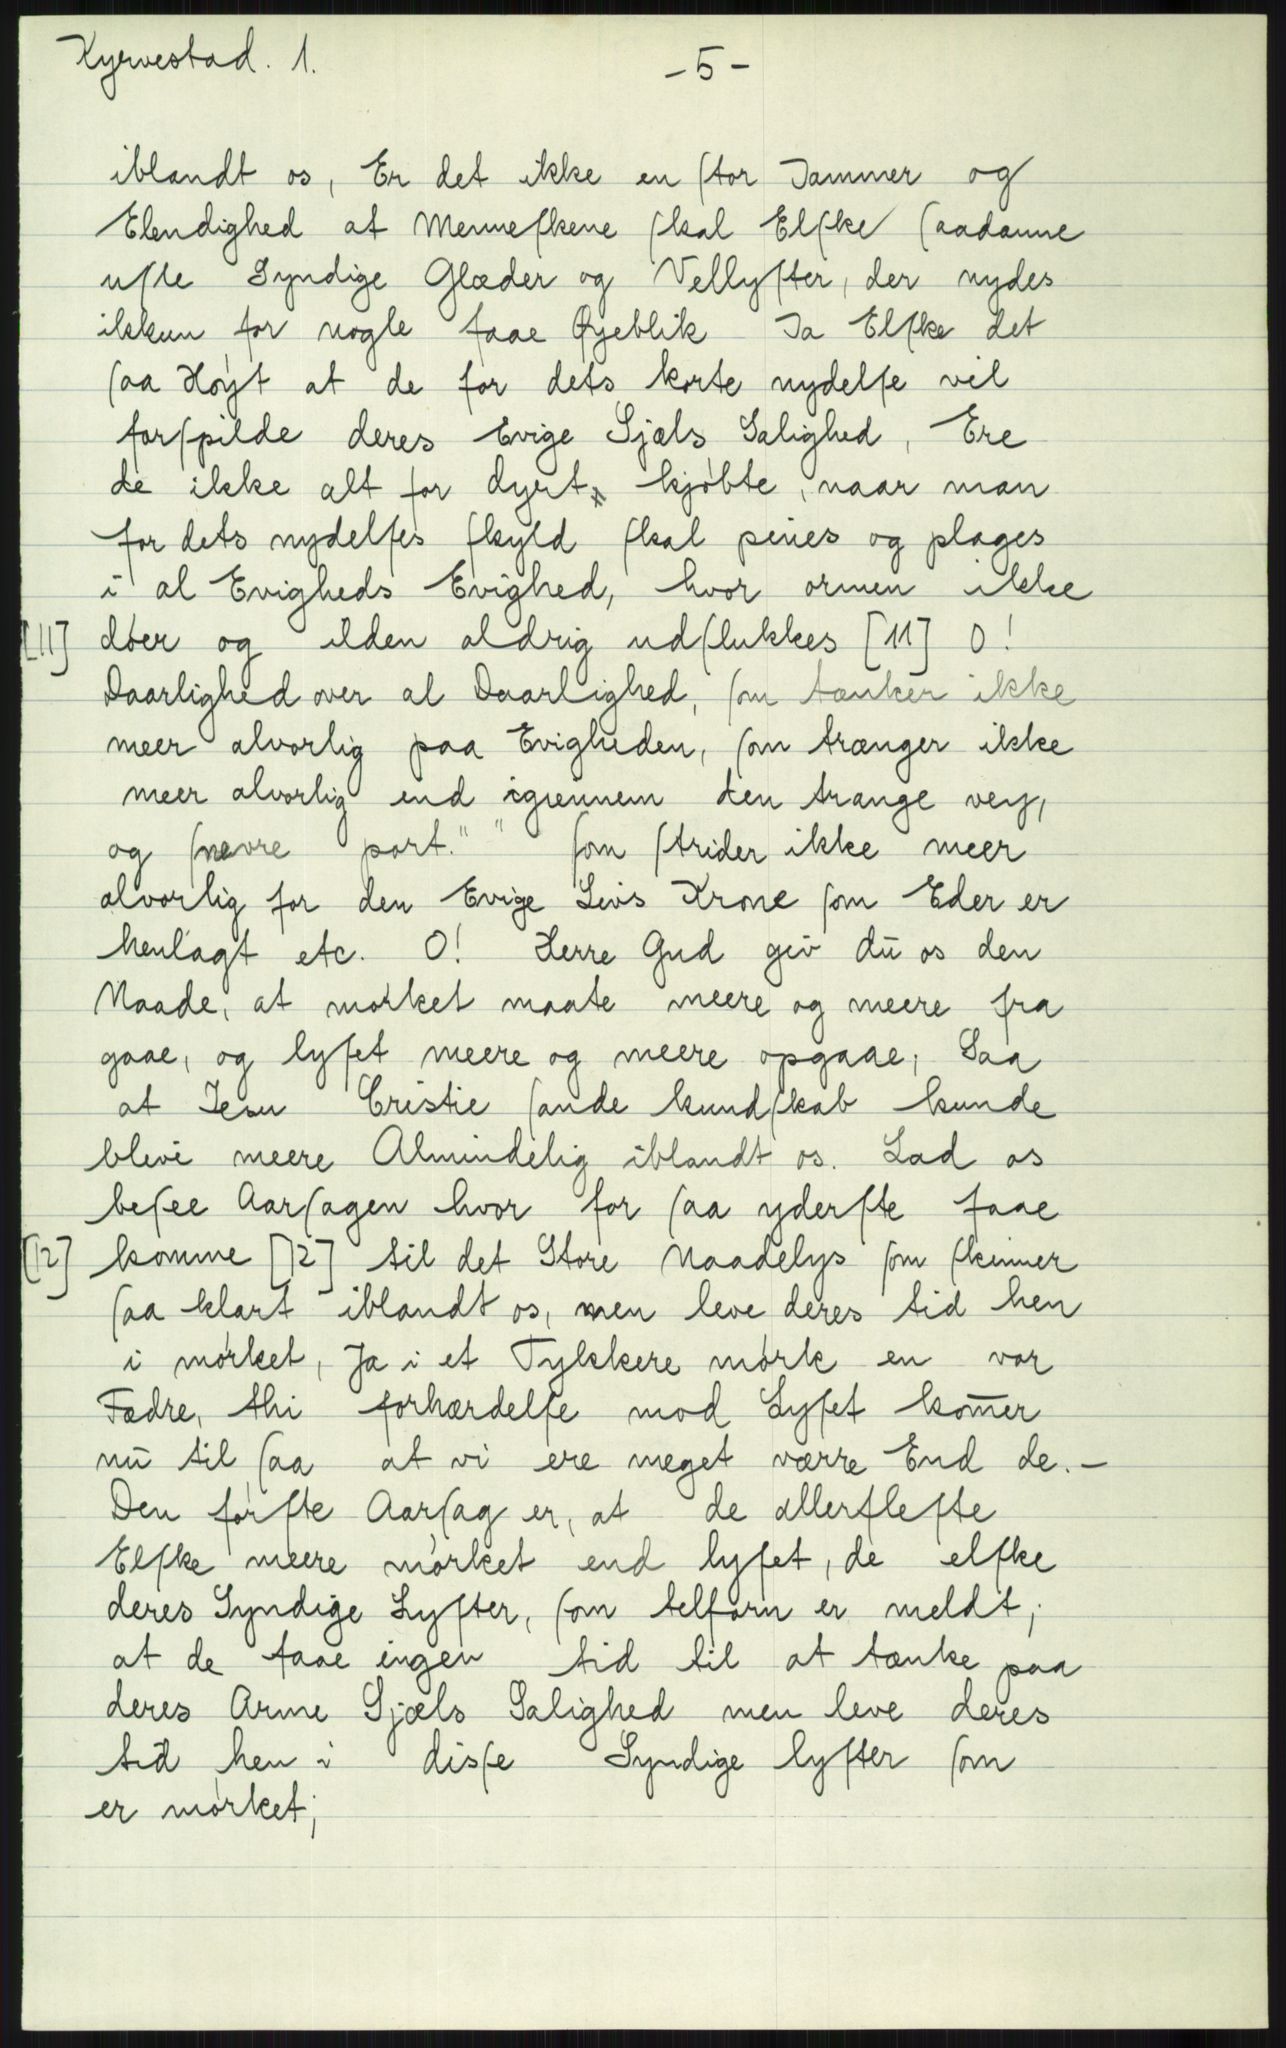 Kyrvestad. 1.
-5-
iblandt os, Er det ikke en ſtor Jammer og
Elendighed at Menneſkene ſkal Elſke ſaadanne
uſle Syndige Glæder og Vellyſter, der nydes
ikkun for nogle faae Øyeblik Ja Elſke det
ſaa Høyt at de for dets korte nydelſe vil
forſpilde deres Evige Sjæls Salighed, Ere
de ikke alt for dyrt kjøbte, naar man
for dets nydelſes ſkyld ſkal pines og plages
i al Evigheds Evighed, hvor ormen ikke
[11] døer og ilden aldrig udſlukkes [11] O!
Daarlighed over al Daarlighed, ſom tænker ikke
meer alvorlig paa Evigheden, ſom trænger ikke
meer alvorlig end igiennem den trange vey,
og ſnevre port." " ſom ſtrider ikke meer
alvorlig for den Evige Livs Krone ſom Eder er
henlagt etc. O! Herre Gud giv dū os den
Naade, at mørket maate meere og meere fra
gaae, og lyſet meere og meere opgaae, Saa
at Jesu Cristie ſande kundſkab kunde
blive meere Almindelig iblandt os. Lad os
beſee Aarſagen hvor for ſaa yderſte faae
[12] komme [12] til det Store Naadelys ſom ſkinner
ſaa klart iblandt os, men leve deres tid hen
i mørket, Ja i et Tykkere mørk en vor
Fædre, thi forhærdelſe mod Lyſet kom̅er
nū til ſaa at vi ere meget værre End de. –
Den førſte Aarſag er, at de allerfleſte
Elſke meere mørket end lyſet, de elſke
deres Syndige Lyſter, ſom telforn er meldt;
at de faae ingen tid til at tænke paa
deres Arme Sjæls Salighed men leve deres
tid hen i disſe Syndige lyſter ſom
er mørket;